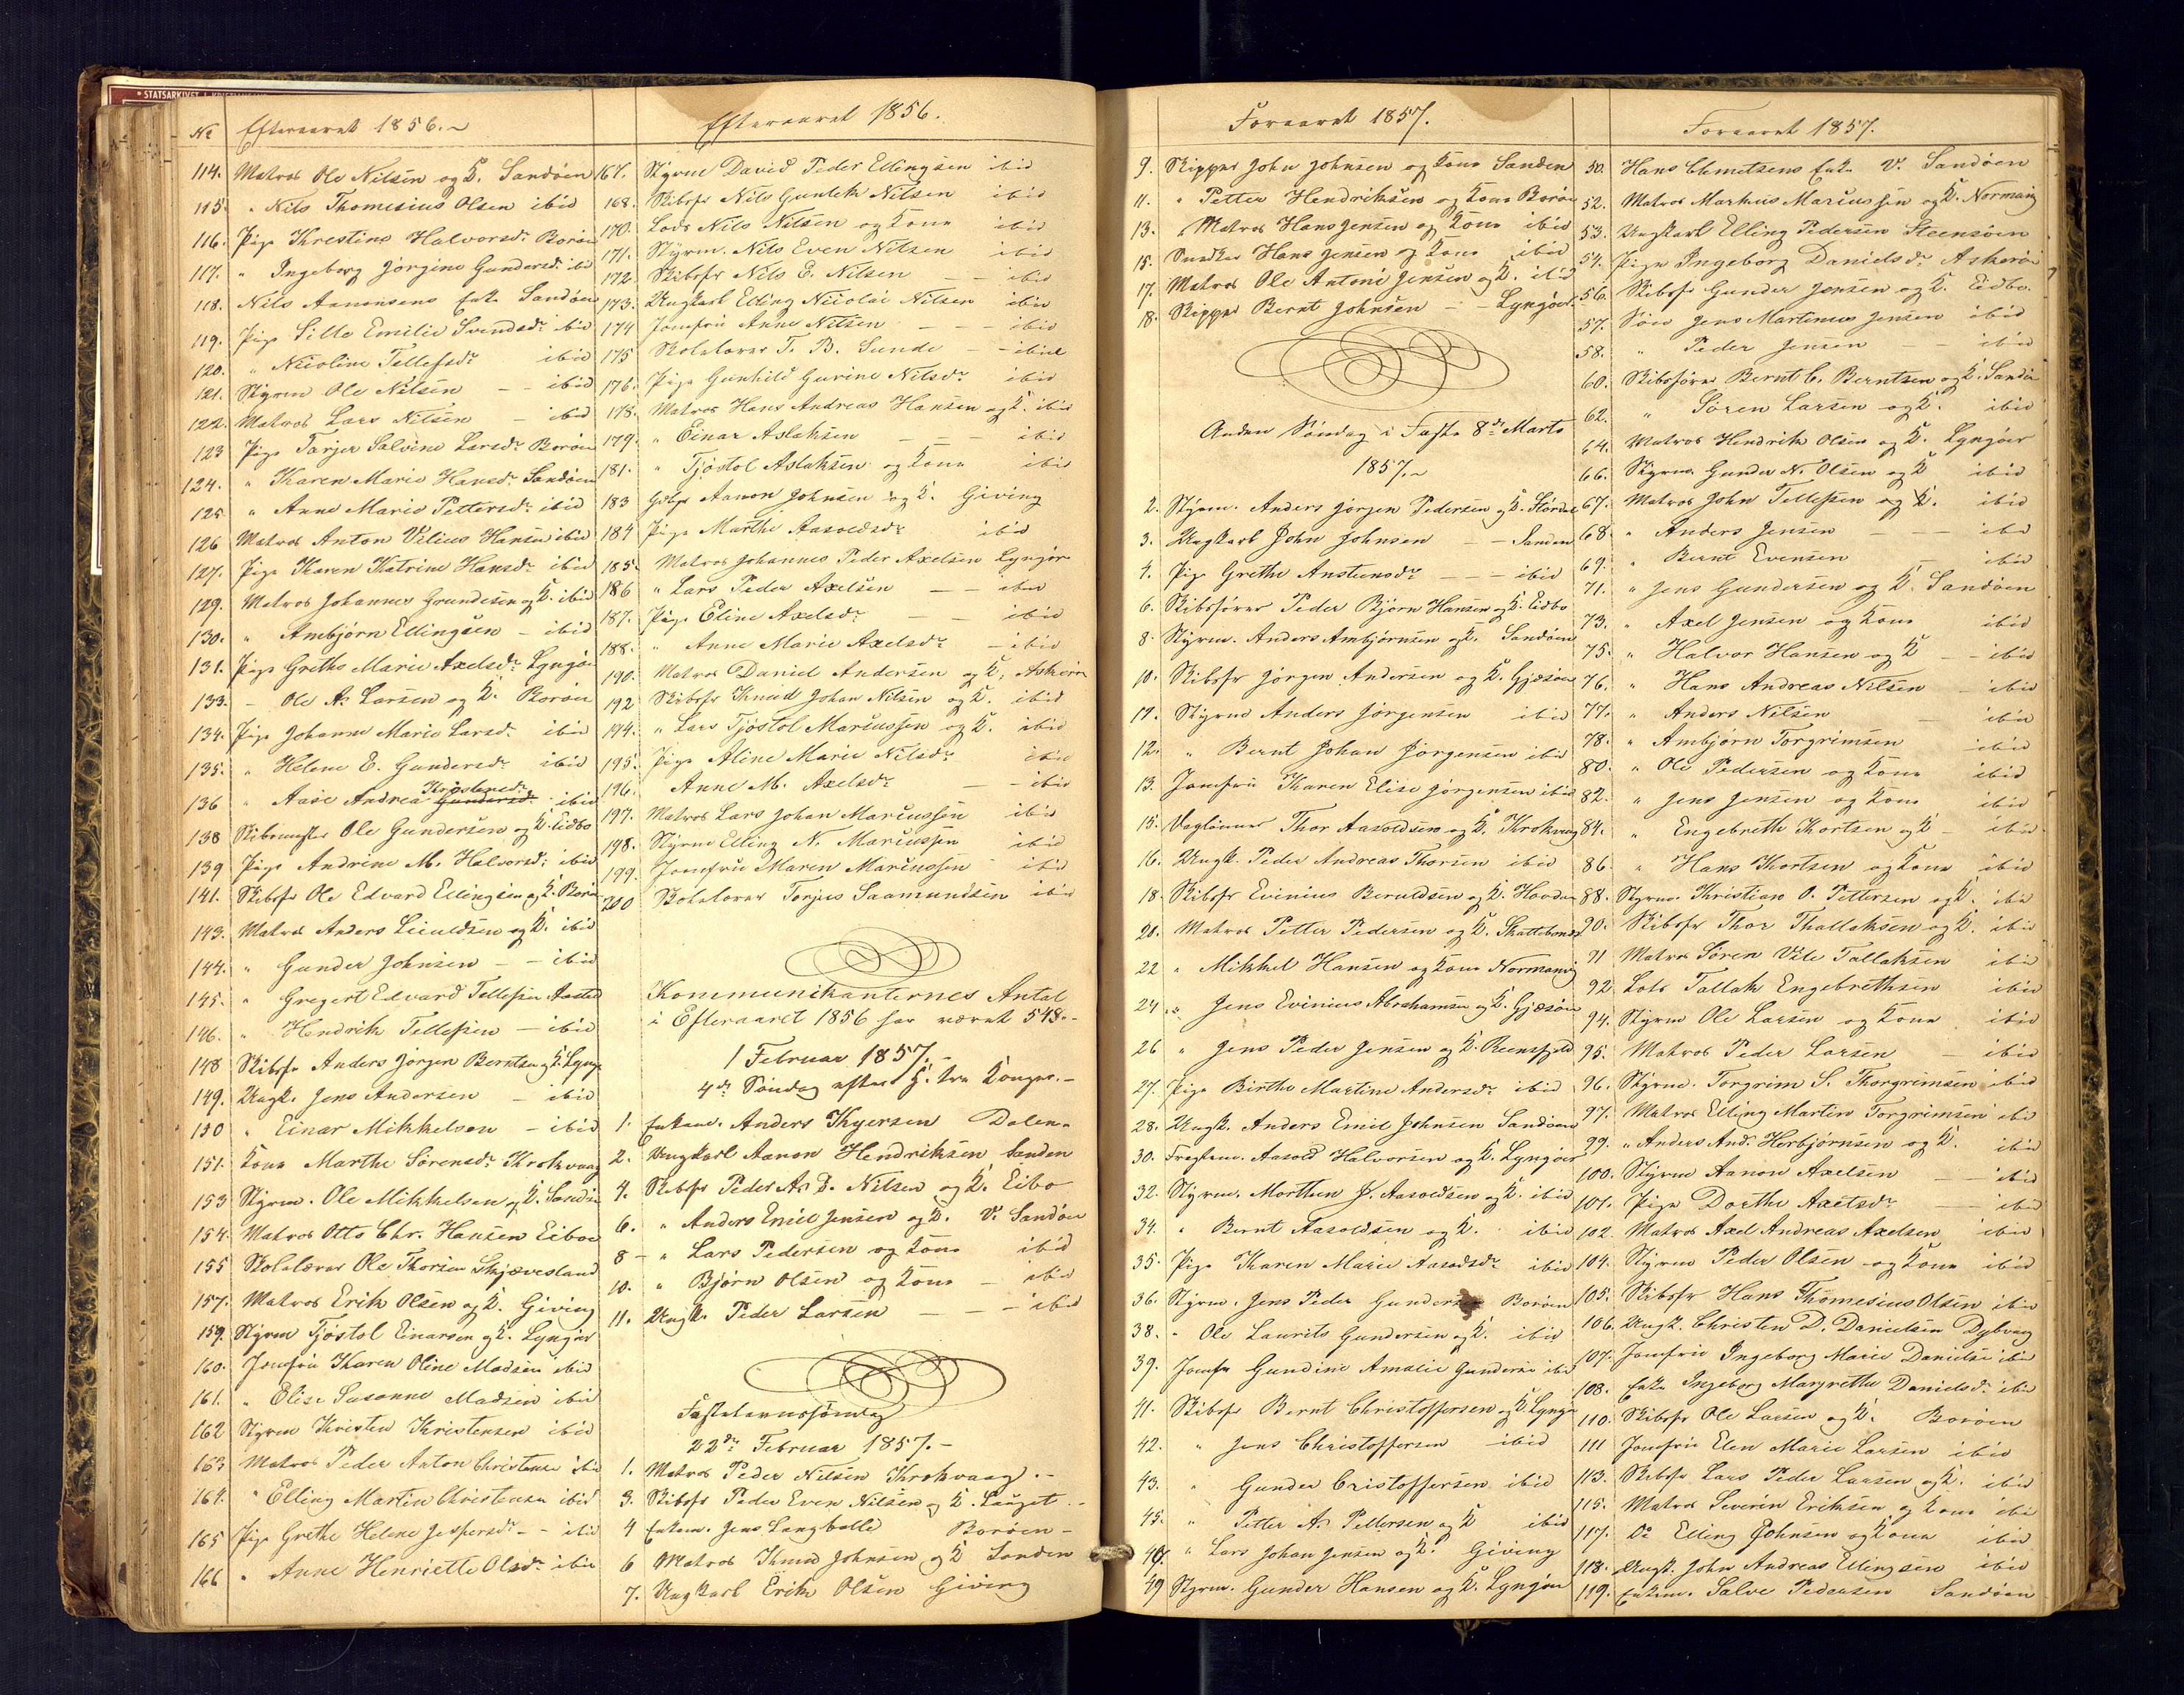 * STATSARKIVET I KRISTIANSAND
No Efteraaret 1856.~
114. Matros Ole Nilsen og K. Sandöen
115. " Nils Thomesius Olsen ibid
116. Pige Krestine Halvorsdr Borøen
117. " Ingeborg Jörgine Gundersdr ibd
118. Nils Aanonsens Enke Sandöen
119. Pige Sille Emilie Svendsdr ibid
120. " Nicoline Tellefsdr ibid
121. Styrm Ole Nilsen – – ibid
122. Matros Lars Nilsen – ibid
123 Pige Tarjer Salvine Larsdr Boröen
124. " Karen Marie Hansdr Sandöen
125. " Anne Marie Pettersdr ibid
126 Matros Anton Vilius Hansen ibid
127. Pige Karen Katrine Hansdr ibid
129. Matros Johannes Grundesen og K. ibid
130. " Ambjörn Ellingsen – ibid
131. Pige Grethe Marie Axelsdr Lyngör
133. – Ole A. Larsen og K. Boröen
134. Pige Johanne Marie Larsd. ibid
135. " Helene E. Gundersdr ibid
Kristensdr
136 " Aase Andrea Gundersd. ibid
138 Skibsmgster Ole Gundersen og K. Eidbo
139 Pige Andrine M. Halvorsd: ibid
141. Skibsfr Ole Edvard Ellingsen og K. Borøen
143. Matros Anders Leiuldsen og K. ibid
144. " Gunder Johnsen – – ibid
145. " Gregert Edvard Tellefsen Aasted
146. " Hendrik Tellefsen – ibid
148 Skibsfr Anders Jörgen Berntsen og K. Lyngr
149. Ungk. Jens Andersen – ibid
150 " Einar Mikkelsen – ibid
151. Kone Marthe Sörensdr Krokvaag
153 Styrm. Ole Mikkelsen og K. Sandöen
154. Matros Otto Chr. Hansen Eiboe
155 Skolelærer Ole Thorsen Skjævesland
157. Matros Erik Olsen og K. Giving
159. Styrm Tjöstol Einarsen og K. Lyngör
160. Jomfru Karen Oline Madsen ibid
161. " Elise Susanne Madsen ibid
162 Styrm Kristen Kristensen ibid
163 Matros Peder Anton Christensen ibid
164. " Elling Martin Christensen ibid
165 Pige Grethe Helene Jespersdr – – ibid
166 " Anne Henriette Olsdr ibid
Efteraaret 1856.
167. Styrm David Peder Ellingsen ibid
168. Skibsfr Nils Guntek Nilsen ibid
170. Lods Nils Nilsen og Kone ibid
171. Styrm. Nils Even Nilsen ibid
172. Skibsfr Nils E. Nilsen – – ibid
173. Ungkarl Elling Nicolai Nilsen ibid
174 Jomfru Anne Nilsen – – – ibid
175 Skolelærer T. B. Sunde – – ibid
176. Pige Gunhild Gurine Nilsdr ibid
178. Matros Hans Andreas Hansen og K. ibid
179. " Einar Aslaksen – – – ibid
181. " Tjöstol Aslaksen og Kone ibid
183 Gdbgr Aanon Johnsen og K. Giving
184 Pige Marthe Aasoldsdr ibid
185. Matros Johannes Peder Axelsen Lyngör
186 " Lars Peder Axelsen – – ibid
187. Pige Eline Axelsdr – – ibid
188. " Anne Marie Axelsdr – ibid
190. Matros Daniel Andersen og K. Askerön
192 Skibsfr Knud Johan Nilsen og K. ibid
194. " Lars Tjöstol Marcussen og K. ibid
195. Pige Aline Marie Nilsdr ibid
196. Anne M. Axelsdr – – ibid
197. Matros Lars Johan Marcussen ibid
198. Styrm Elling N. Marcussen ibid
199. Jomfru Maren Marcussen – ibid
200 Skolelærer Torjus Saamundsen ibid
Kommunikanternes Antal
i Efteraaret 1856 har været 548.-
1 Februar 1857.-
4de Søndag efter H. tre Konger.-
1. Enkem. Anders Kyersen Dalen-
2. Ungkarl Aanon Hendriksen Sanden
4. Skibsfr Peder A. D. Nilsen og K. Eibo
6. " Anders Emil Jensen og K. V. Sandöen
8 – " Lars Pedersen og Kone ibid
10. " Björn Olsen og Kone – ibid
11. Ungk. Peder Larsen – – – ibid
Fastelavnssöndag
22de Februar 1857.-
1. Matros Peder Nilsen Krokvaag.-
3. Skibsfr Peder Even Nilsen og K. Lauget.-
4 Enkem. Jens Langballe Boröen-
6 Matros Knud Johnsen og K Sanden
7. Ungkarl Erik Olsen Giving
Foraaret 1857.
9. Skipper John Johnsen og Kone Sanden
11. " Petter Hendriksen og Kone Borøen
13. Matros Hans Jensen og Kone ibid
15. Hans Jensen og Kone ibid
17. Matros Ole Antoni Jensen og K. ibid
18. Skipper Bernt Johnsen – – Lyngöer
Anden Söndag i Faste 8de Marts
1857.~
2. Styrm. Anders Jörgen Pedersen og K.
3. Ungkarl John Johnsen – – Sanden
4. Pige Grethe Anstensdr – – – ibid
6. Skibsförer Peder Björn Hansen og K. Eidbo
8. Styrm. Anders Ambjörnsen og K. Sandöen
10. Skibsfr Jörgen Andersen og K. Gjæsöen
11. Styrm Anders Jörgensen ibid
12. " Bernt Johan Jörgensen ibid
13. Jomfru Karen Elise Jörgensen ibid
15. Daglönner Thor Aasoldsen og K. Krokvaag
16. Ungk. Peder Andreas Thorsen ibid
18 Skibsfr Evinius Beruldsen og K. Hovdan
20. Matros Petter Pedersen og K. Skattebonds
22 " Mikkel Hansen og Kone Normanvig
24 " Jens Evinius Abrahamsen og K. Gjæsöen
26 " Jens Peder Jensen og K. Reensfjeld
27. Pige Birthe Martine Andersdr ibid
28. Ungk. Anders Emil Johnsen Sandöen
30. Fragtem. Aasold Halvorsen og K. Lyngöer
32. Styrm. Morthen J. Aasoldsen og K. ibid
34. " Bernt Aasoldsen og K. ibid
35. Pige Karen Marie Aasoldsdr ibid
36. Styrm. Jens Peder Gundersen Boröen
38. " Ole Laurits Gundersen og K. ibid
39. Jomfr Gundine Amalie Gundersen ibid
41. Skibsfr Bernt Christoffersen og K. Lyngør
42. " Jens Christoffersen ibid
43. " Gunder Cristoffersen ibid
45. " Petter A. Pettersen og K ibid
47. " Lars Johan Jensen og K. Giving
49 Styrm. Gunder Hansen og K. Lyngöer
Foraaret 1857.
50. Hans Clemetsens Enke V. Sandöen
52. Matros Markus Mariussen og K. Normanvig
53. Ungkarl Elling Pedersen Steensöen
54. Pige Ingeborg Danielsdr Askerön
56. Skibsfr Gunder Jensen og K. Eidbo.
57. Søn Jens Martinius Jensen ibid
58. " Peder Jensen – – ibid
60. Skibsförer Bernt C. Berntsen og K. Sandön
62. " Sören Larsen og K. ibid
64. Matros Hendrik Olsen og K. Lyngöer
66. Styrm. Gunder N. Olsen og K ibid
67. Matros John Tellefsen og K. ibid
68. " Anders Jensen – – – ibd
69. " Bernt Evensen – ibid
71. " Jens Gundersen og K. Sandöen
73. " Axel Jensen og Kone ibid
75. " Halvor Hansen og K – – ibid
76. " Hans Andreas Nilsen – ibid
77. " Anders Nilsen – ibid
78. " Ambjörn Torgrimsen ibid
80. " Ole Pedersen og Kone ibid
82. " Jens Jensen og Kone ibid
84. " Engebreth Kortsen og K – ibid.
86. " Hans Kortsen og Kone ibid
88. Styrm. Kristian O. Pettersen og K. ibd
90. Skibsfr Thor Thallaksen og K. ibid
91 Matros Sören Vile Tallaksen ibid
92. Lods Tallak Engebrethsen ibid
94. Styrm Ole Larsen og Kone ibid
95. Matros Peder Larsen – ibid
96. Styrm. Torgrim S. Thorgrimsen ibid
97. Matros Elling Martin Torgrimsen ibd
99. " Anders And. Herbjörnsen og K. ibid
100. Styrm Aanon Axelsen – – ibid
101. Pige Dorthe Axelsdr – – ibid
102. Matros Axel Andreas Axelsen ibid
104. Styrm Peder Olsen og Kone ibid
105. Skibsfr Hans Thomesius Olsen ibid
106. Ungk. Christen D. Danielsen Dybvaag
107. Jomfru Ingeborg Marie Danielsen ibid
108. Enke Ingeborg Margrethe Danielsdr ibid
110. Skibsfr Ole Larsen og K. Boröen
111 Jomfru Elen Marie Larsen ibid
113. Skibsfr Lars Peder Larsen og K. ibid
115. Matros Severin Eriksen og Kone ibid
117. Do Elling Johnsen og Kone ibid
118. Ungk. John Andreas Ellingsen ibid
119. Enkem. Salve Pedersen Sandöen